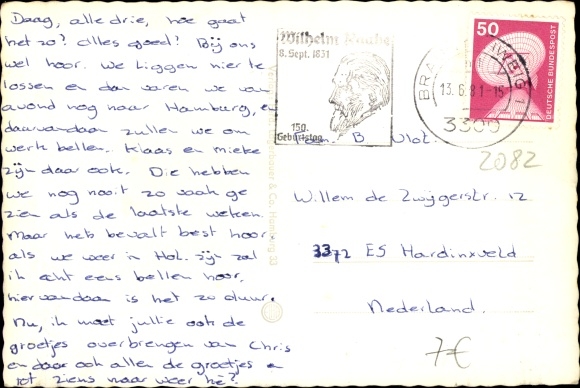 Daag, alle drie, hoe gaat
het zo? Alles goed? Bij ons
wel hoor, we liggen hier te
lossen en dan varen we van
avond nog naar Hamburg, en
daarvandaan zullen we om
werk bellen. Klaas en mieke
zijn daar ook. Die hebben
we nog nooit zo vaak ge
zien als de laatste weken.
Maar het bevalt best hoor
als we weer in Hol. zijn zal
ik echt eens bellen hoor,
hiervandaan is het zo duur.
Nu, ik moet jullie ook de
groetjes overbrengen van Chris
en daar ook allen de groetjes
tot ziens maar weer hè?
Wilhelm Raabe
8. Sept. 1831
150.
Geburtstag
13.6.81-15
3300
50
DEUTSCHE BUNDESPOST
2082
Fam. B Vlot.
Willem de Zwijgerstr. 12
3372 ES Hardinxveld
Nederland.
7€
& Co, Hamburg 33